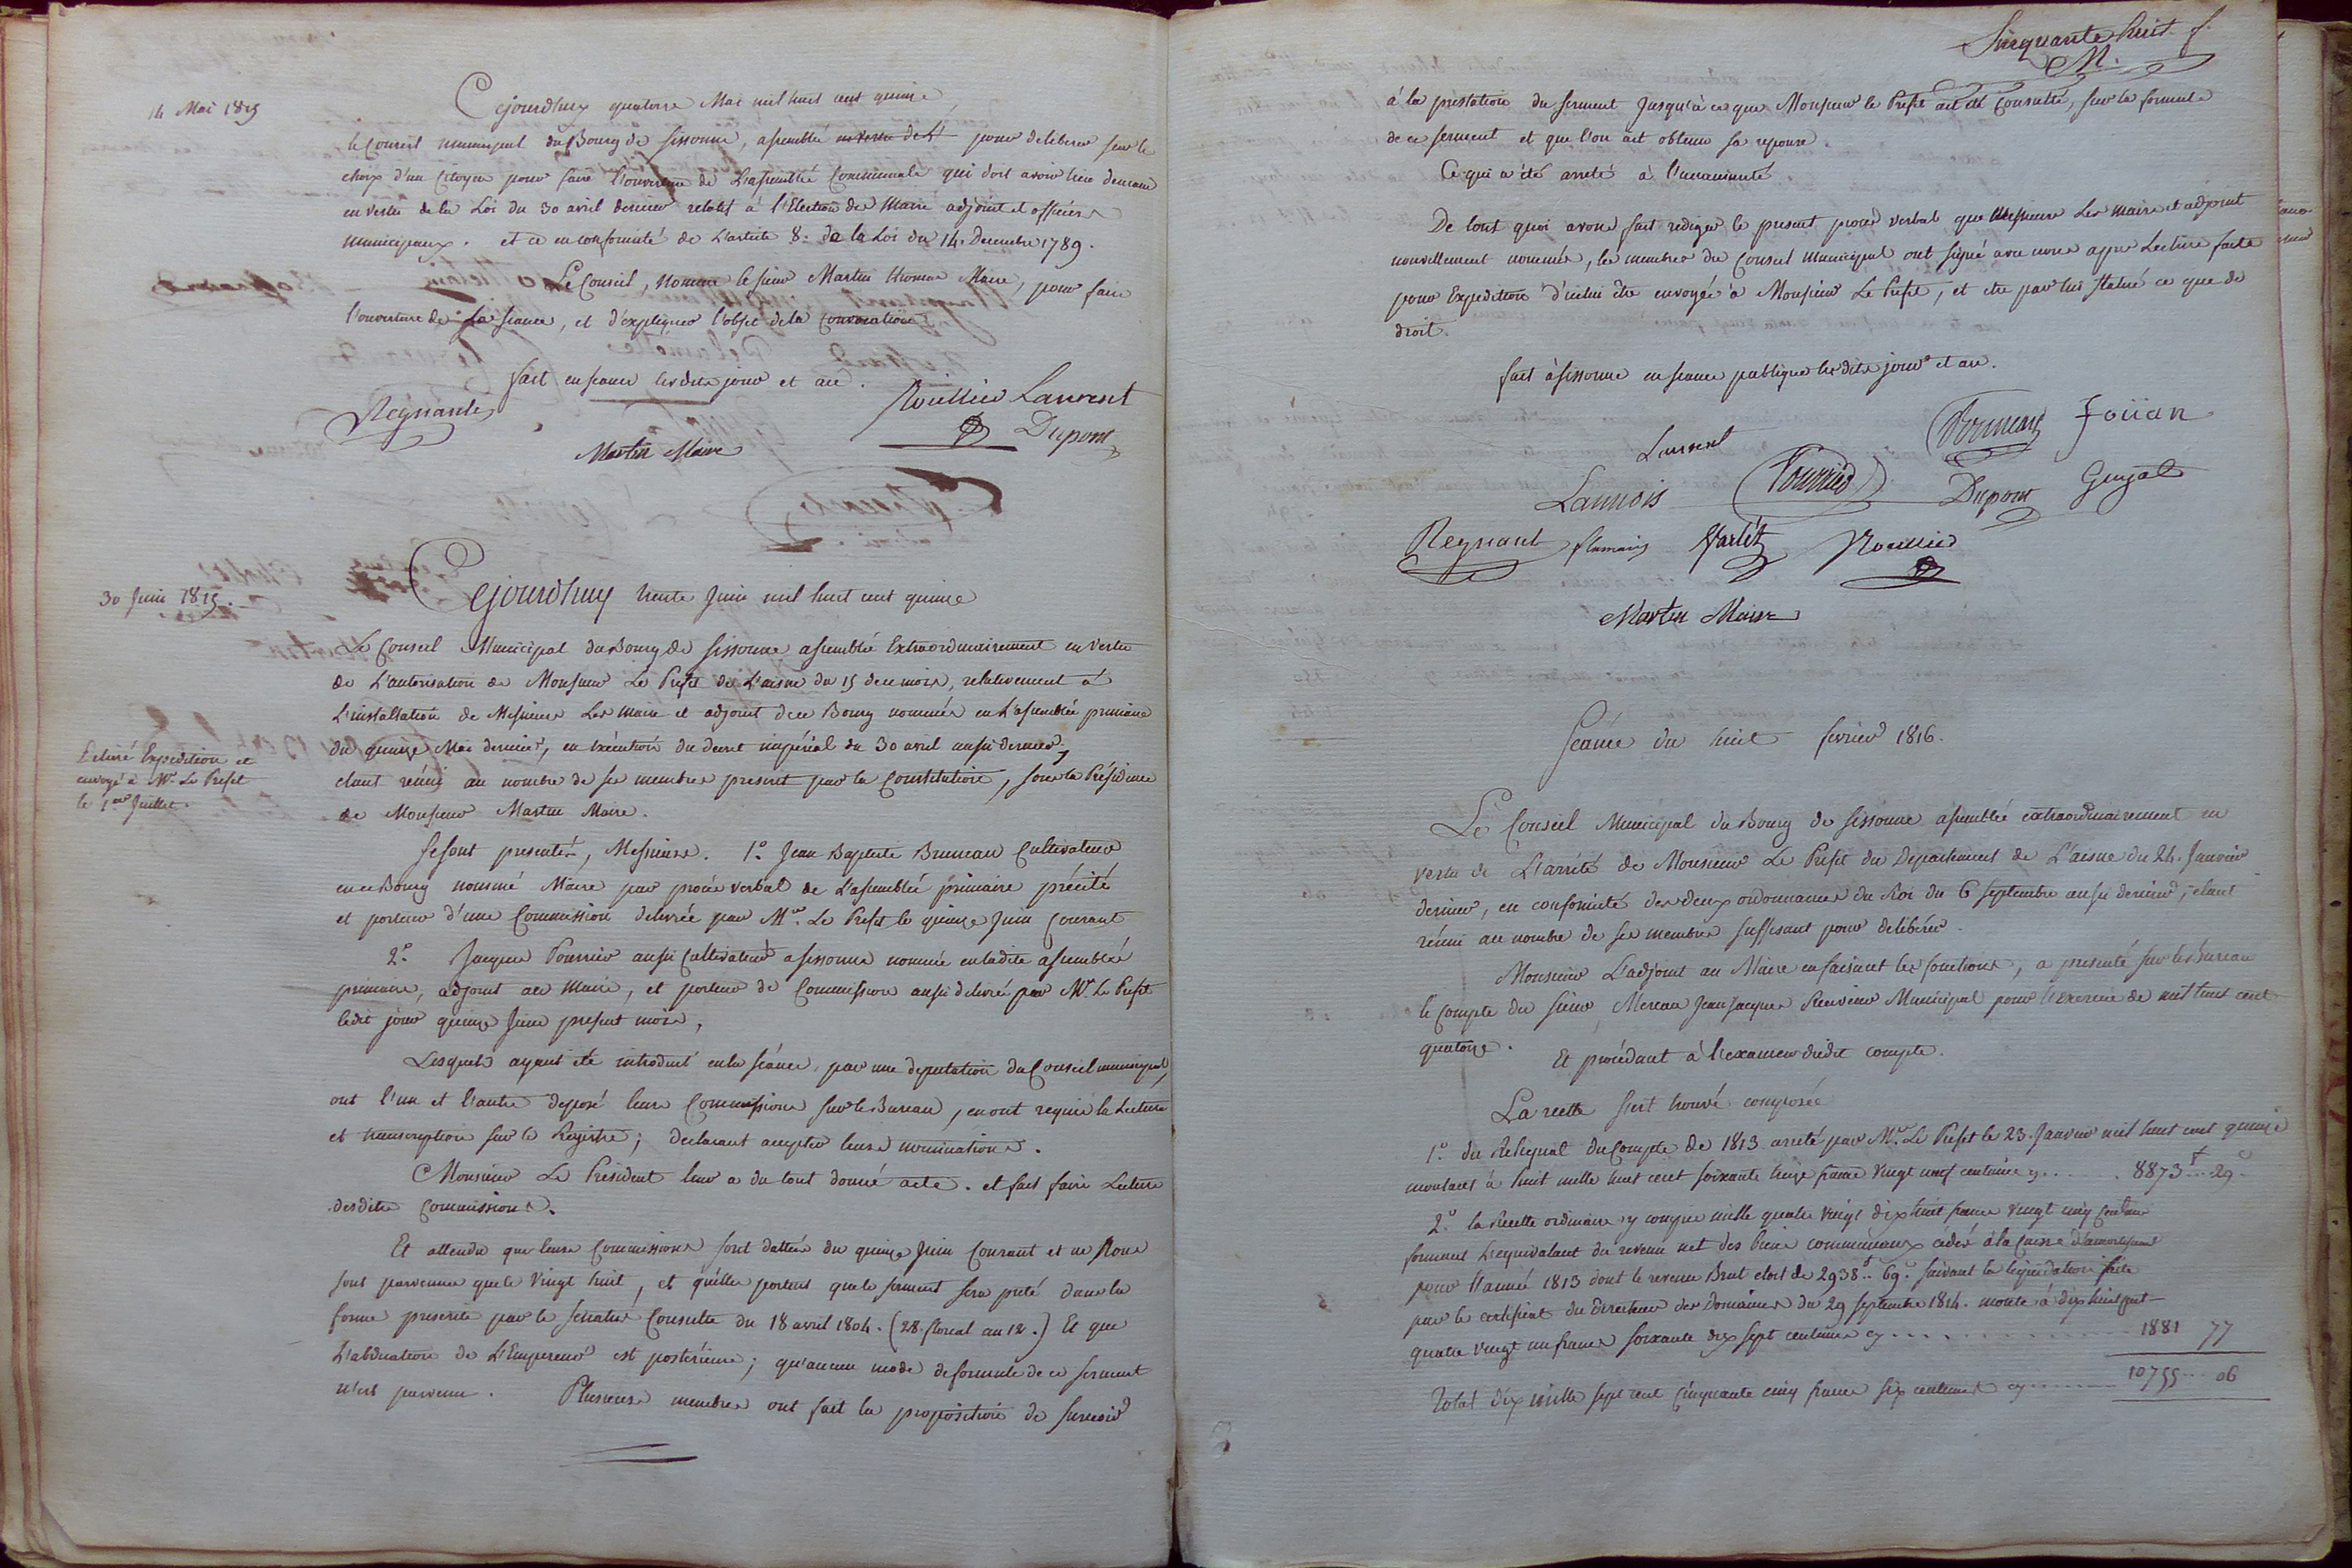 14 Mai 1815
Cejourdhuy quatorze Mai mil huit cent quinze,
le Conseil municipal du Bourg de Sissonne, assemblé en vertu de L' pour deliberer sur le
choix d'un Citoyen pour faire l'ouverture de L'assemblée Communale qui doit avoir lieu demain
en vertu de la Loi du 30 avril dernier relatif à l'Election des Maire adjoint et officiers
municipaux. et ce en conformité de L'article 8. de la Loi du 14. Decembre 1789.
Le Conseil, Nomme le sieur Martin Maire, pour faire
l'ouverture de la seance, et d'expliquer l'objet de la convocation
fait en seance lesdits jour et an.
Regnault
Martin Maire
Rouillié Laurent
Dupont
30 Juin 1815.
Cejourdhuy trente Juin mil huit cent quinze
Le Conseil Municipal du Bourg de Sissonne assemblé Extraordinairement en Vertu
de L'autorisation de Monsieur Le Prefet de L'aisne du 15 de ce mois, relativement à
L'installation de Messieurs Les Maire et adjoint de ce Bourg nommés en L'assemblée primaire
du quinze Mai dernier, en execution du decret impérial du 30 avril aussi dernier,
etant réuni au nombre de ses membres prescrit par la Constitution, sous la Présidence
de Monsieur Martin Maire.
Delivré Expedition et
envoyé à Mr. Le Prefet
le 1er Juillet.
Se sont presentés, Messieurs. 1.° Jean Baptiste Bruneau Cultivateur
en ce Bourg nommé Maire par procès verbal de L'assemblée primaire précité
et porteur d'une Commission delivrée par Mr. Le Prefet le quinze Juin Courant
2.° Jacques Pourrier aussi Cultivateur a Sissonne nommé en ladite assemblée
primaire, adjoint au Maire, et porteur de Commission aussi delivrée par Mr. Le Prefet
ledit jour quinze Juin present mois,
Lesquels ayant été introduit en la séance, par une deputation du Conseil municipal,
ont l'un et l'autre deposé leurs Commissions sur le Bureau, en ont requis la Lecture
et transcription sur le Registre; declarant accepter leurs nominations.
Monsieur Le President leur a du tout donné acte. et fait faire Lecture
desdites Commissions.
Et attendu que leurs Commissions sont dattées du quinze Juin Courant et ne Nous
sont parvenues que le Vingt huit, et qu'elles portent que le serment sera preté dans la
forme prescrite par le Senatus Consulte du 18 avril 1804. (28. floreal an 12.) Et que
L'abdication de L'Empereur est postérieure; qu'aucun mode de formule de ce serment
n'est parvenu. Plusieurs membres ont fait la proposition de surseoir
Cinquante huit f.
M.
à la prestation du serment Jusqu'à ce que Monsieur le Prefet ait été Consulté, sur la formule
de ce serment et que l'on ait obtenu sa reponse.
Ce qui a été arreté à l'unanimité
De tout quoi avons fait rediger le present procès verbal que Messieurs Les maire et adjoint
nouvellement nommés, les membres du Conseil Municipal ont signé avec nous apres Lecture faite
pour Expedition d'icelui être envoyée à Monsieur Le Prefet, et etre par lui statué ce que de
droit.
fait à Sissonne en seance publique les dits jour et an.
Laurent Bruneau Joüan
Lannois Pourrier Dupont Guyot
Regnault flamain Varlet Rouillié
Martin Maire
Séance du huit fevrier 1816.
Le Conseil Municipal du Bourg de Sissonne assemblé extraordinairement en
vertu de L'arrêté de Monsieur Le Prefet du Departement de L'aisne du 24. Janvier
dernier, en conformité des deux ordonnances du Roi du 6 septembre aussi dernier, étant
réuni au nombre de ses membres suffisant pour delibérer.
Monsieur L'adjoint au Maire en faisant les fonctions, a presenté sur le Bureau
le compte du sieur Mereau Jean Jacques Receveur Municipal pour l'exercice de mil huit cent
quatorze.
Et procédant à l'examen dudit compte.
La recette s'est trouvé composée
1.° du Reliquat du Compte de 1813 arreté par Mr. Le Prefet le 23. Janvier mil huit cent quinze
montant à huit mille huit cent soixante treize francs Vingt neuf centimes cy . . . . . 8873f .. 29c
2.° la Recette ordinaire y compris mille quatre vingt dix huit francs vingt cinq Centimes
formant L'equivalant du revenu net des biens communaux cédés à la Caisse d'amortissement
pour l'année 1813 dont le revenu Brut etoit de 2938f .. 69c suivant la liquidation faite
par le certificat du Directeur des Domaines du 29 septembre 1814. monte à dix huit cent
quatre vingt un francs soixante dix sept centimes cy . . . . . . . 1881 77
Total dix mille sept cent cinquante cinq francs six centimes cy . . . . . 10755 .. 06